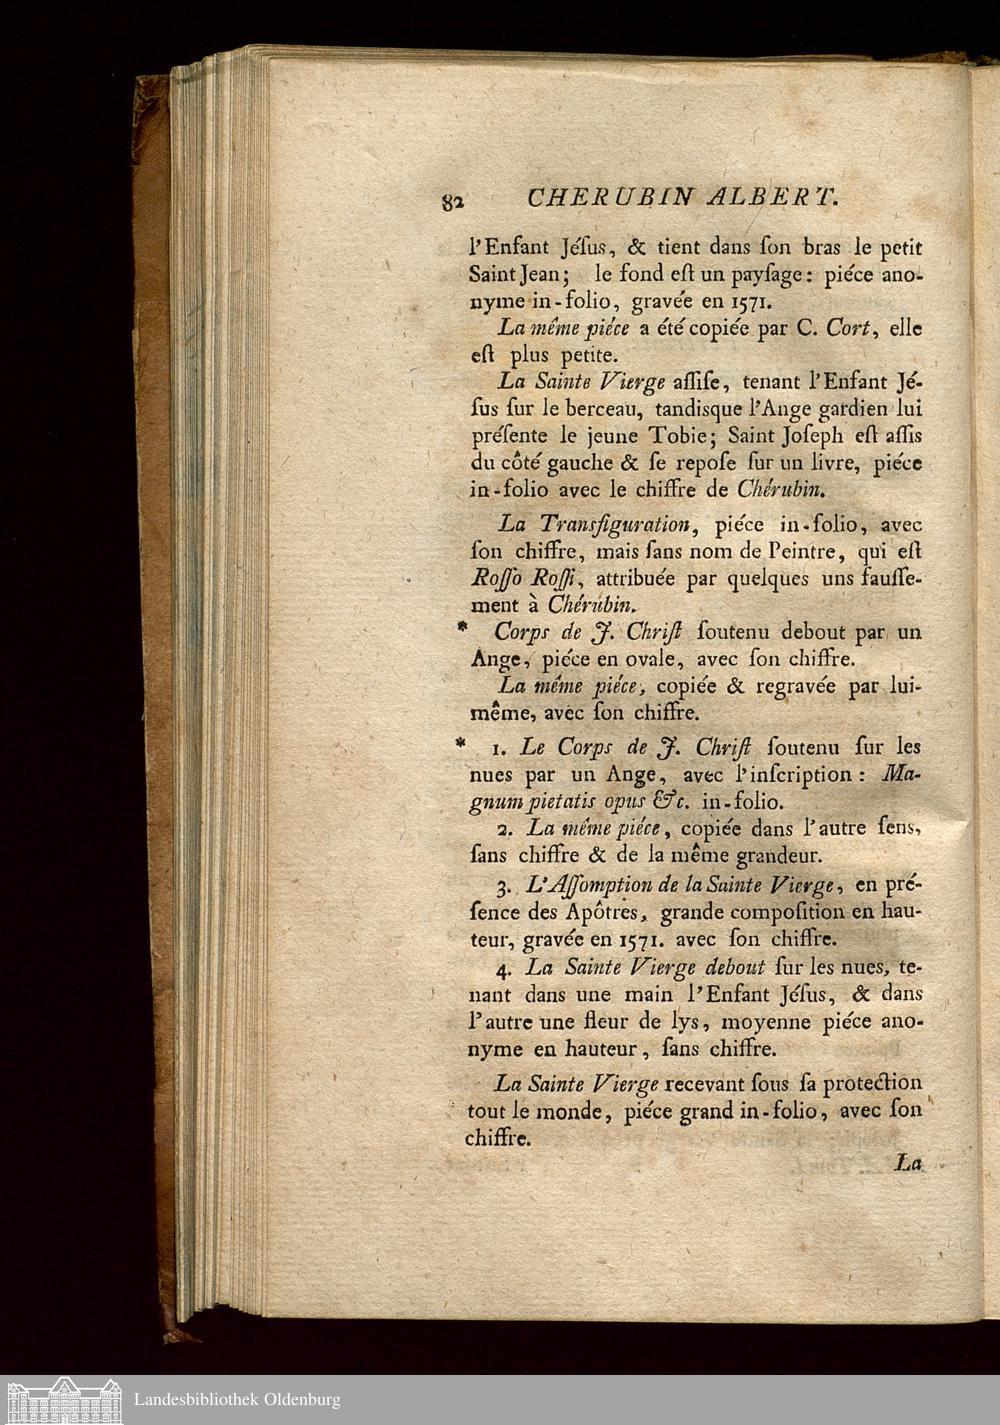 82 CHERUBIN ALBERT.
l'Enfant Jéſus, & tient dans ſon bras le petit
Saint Jean; le fond eſt un payſage: piéce ano-
nyme in-folio, gravée en 1571.
La même piéce a été copiée par C. Cort, elle
eſt plus petite.
La Sainte Vierge aſſiſe, tenant l'Enfant Jé-
ſus ſur le berceau, tandisque l'Ange gardien lui
préſente le jeune Tobie; Saint Joſeph eſt aſſis
du côté gauche & ſe repoſe ſur un livre, piéce
in-folio avec le chiffre de Chérubin.
La Transfiguration, piéce in-folio, avec
ſon chiffre, mais ſans nom de Peintre, qui eſt
Roſſo Roſſi, attribuée par quelques uns fauſſe-
ment à Chérubin.
* Corps de J. Chriſt ſoutenu debout par un
Ange, piéce en ovale, avec ſon chiffre.
La même piéce, copiée & regravée par lui-
même, avec ſon chiffre.
* 1. Le Corps de J. Chriſt ſoutenu ſur les
nues par un Ange, avec l'inſcription: Ma-
gnum pietatis opus &c. in-folio.
2. La même piéce, copiée dans l'autre ſens,
ſans chiffre & de la même grandeur.
3. L'Aſſomption de la Sainte Vierge, en pré-
ſence des Apôtres, grande compoſition en hau-
teur, gravée en 1571. avec ſon chiffre.
4. La Sainte Vierge debout ſur les nues, te-
nant dans une main l'Enfant Jéſus, & dans
l'autre une fleur de lys, moyenne piéce ano-
nyme en hauteur, ſans chiffre.
La Sainte Vierge recevant ſous ſa protection
tout le monde, piéce grand in-folio, avec ſon
chiffre.
La
Landesbibliothek Oldenburg